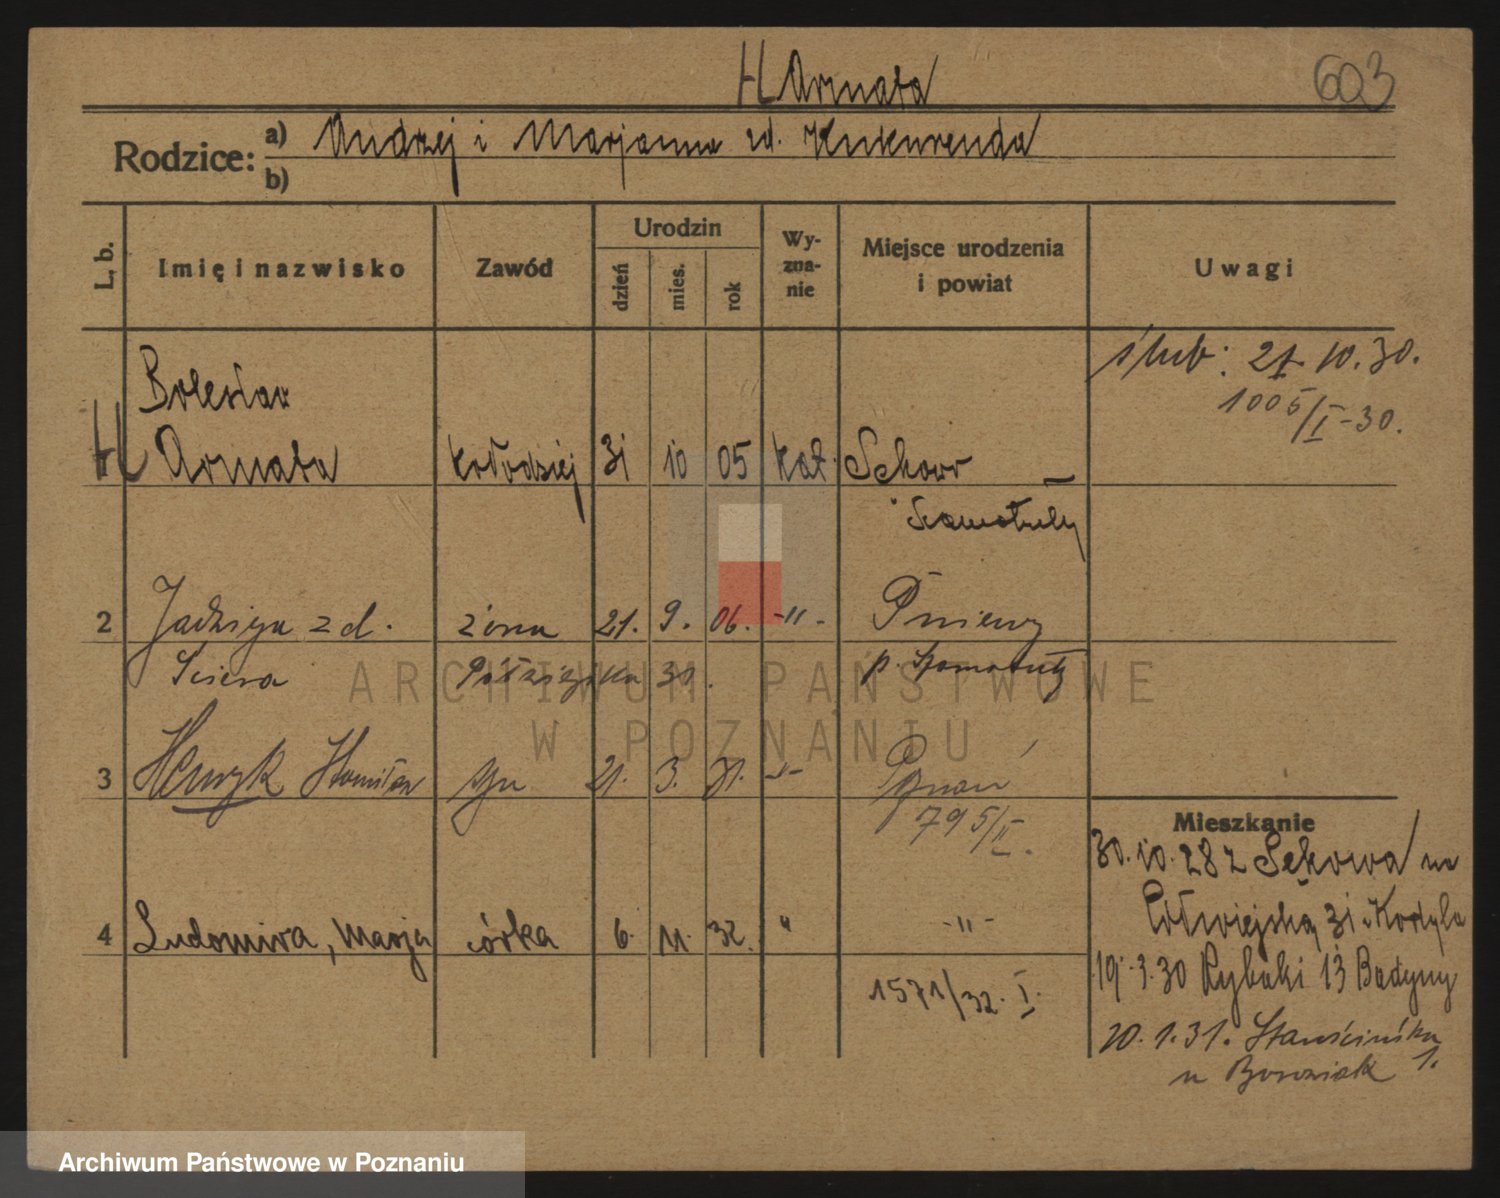 Armata
603
Rodzice: a) Andrzej i Marjanna zd. Kukurenda
b)
L. b.
Imię i nazwisko
Zawód
Urodzin
dzień
mies.
rok
Wy-
zna-
nie
Miejsce urodzenia
i powiat
Uwagi
ślub: 21. 10. 30.
1005/I-30.
Bolesław
Armata kołodziej 31 10 05 kat. Sekowo
Szamotuły
2 Jadwiga z d. żona 21. 9. 06. -"- Pniewy
p. Szamotuły
3 Henryk Stanisław syn 21. 3. 31. -"- Poznań
795/II.
4 Ludomira, Marja córka 6. 11. 32. " -"-
1571/32. I.
Mieszkanie
30. 10. 28 z Sękowa na
Półwiejską 31
19. 3. 30 Rybaki 13
20. 1. 31.
u Borowiak 1.
ARCHIWUM PAŃSTWOWE
W POZNANIU
Archiwum Państwowe w Poznaniu